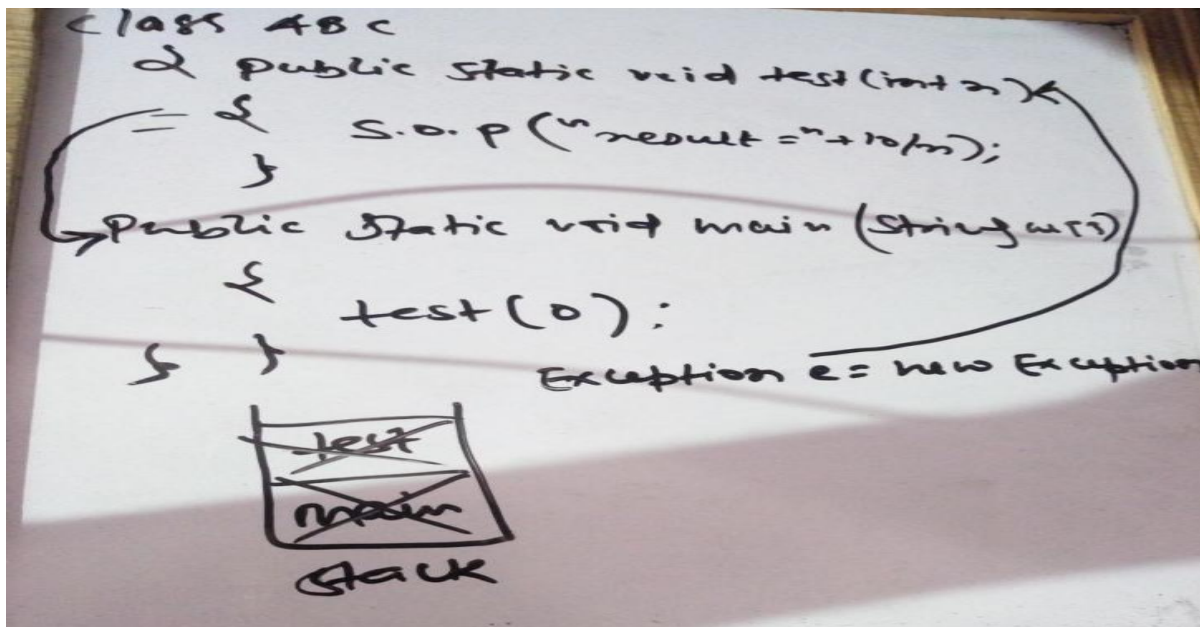 class ABC
{ public static void test(int n)
= {     S.O.P("result ="+10/n);
}
public static void main(String ar[])
{
test(0);
} }
Exception e= new Exception
test
main
stack